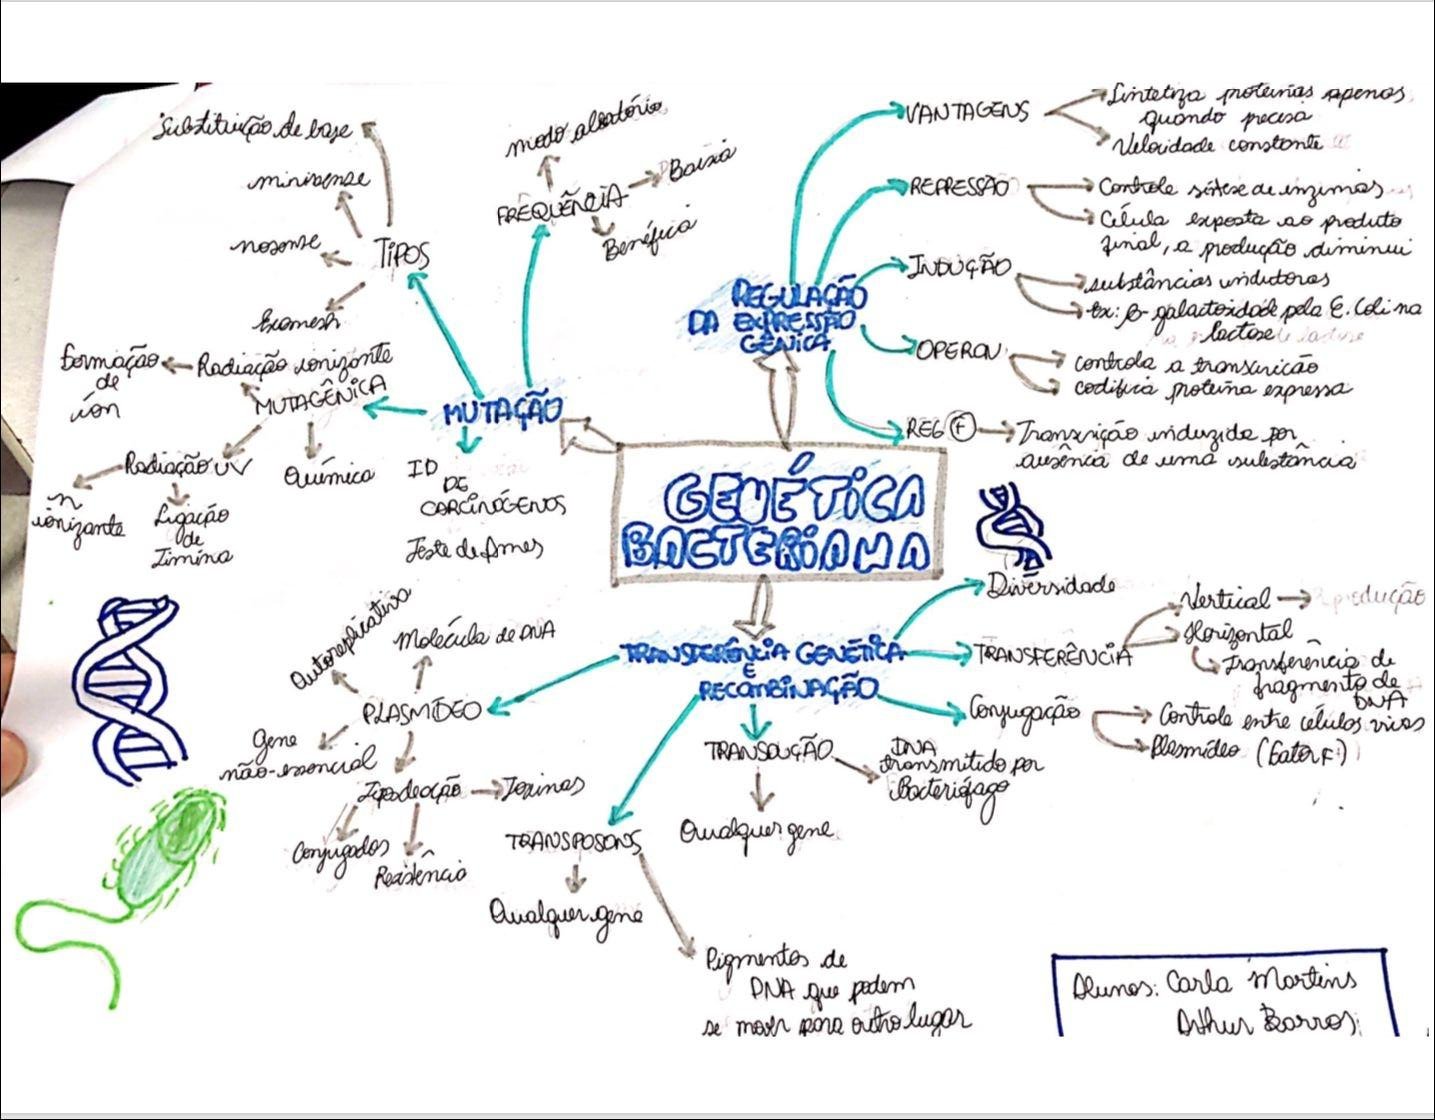 Substituição de base
minisense
nosense
TIPOS
modo aleatório
FREQUÊNCIA
Baixa
Benéfica
VANTAGENS
Sintetiza proteínas apenas
quando precisa
Velocidade constante
REPRESSÃO
Controle síntese de enzimas
Célula exposta ao produto
final, a produção diminui
INDUÇÃO
substâncias indutoras
Ex: β-galactosidade pela E. Coli na
lactose
REGULAÇÃO
DA EXPRESSÃO
GÊNICA
OPERON
controla a transcrição
codifica proteína expressa
REG F
Transcrição induzida por
ausência de uma substância
Formação
de
íon
Radiação ionizante
MUTAGÊNICA
MUTAÇÃO
Radiação UV
Química
ñ
ionizante
Ligação
de
Timina
ID
DE
CARCINÓGENOS
Teste de Ames
GENÉTICA
BACTERIANA
Diversidade
TRANSFERÊNCIA GENÉTICA
E
RECOMBINAÇÃO
TRANSFERÊNCIA
Vertical
Horizontal
Transferência de
fragmento de
DNA
Conjugação
Controle entre células vivas
Plasmídeo (Fator F)
Autoreplicativa
Molécula de DNA
PLASMÍDEO
Gene
não-essencial
Toxinas
Conjugados
Resistência
TRANSDUÇÃO
DNA
transmitido por
Bacteriófago
Qualquer gene
TRANSPOSONS
Qualquer gene
Pigmentos de
DNA que podem
se mover para outro lugar
Alunos: Carla Martins
Arthur Barros;